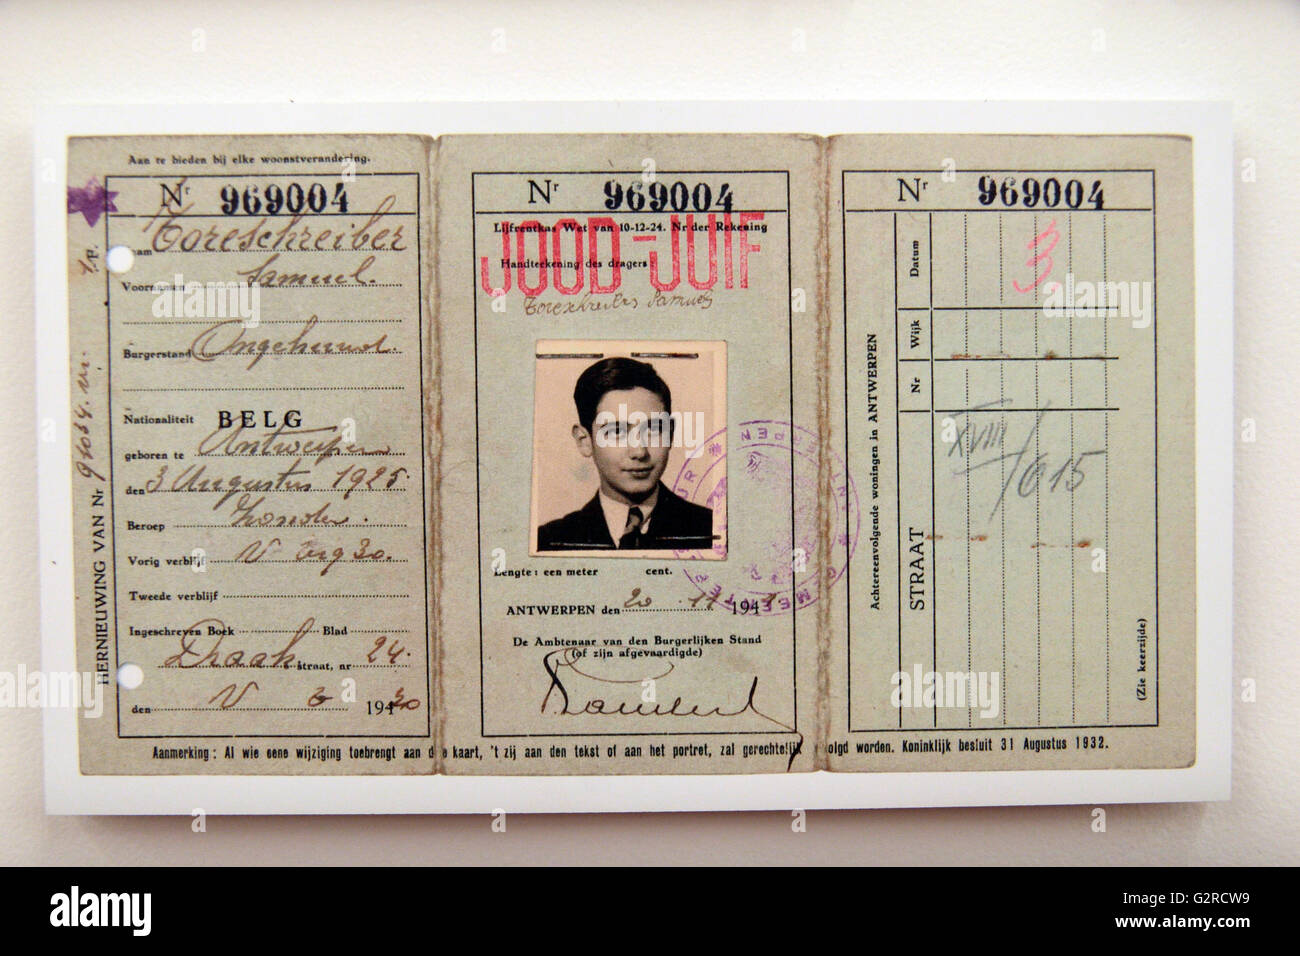 Aan te bieden bij elke woonstverandering.
Nr 969004
Naam Toreschreiber
Voornamen Samuel.
Burgerstand Ongehuwd.
Nationaliteit BELG
geboren te Antwerpen
den 3 Augustus 1925.
Beroep Zonder.
Vorig verblijf
Tweede verblijf
Ingeschreven Boek Blad
Draak straat, nr 24.
den V 194
HERNIEUWING VAN Nr
Nr 969004
Lijfrentkas Wet van 10-12-24. Nr der Rekening
JOOD-JUIF
Handteekening des dragers
Toreschreiber Samuel
Lengte : een meter cent.
ANTWERPEN den 20 11 194
De Ambtenaar van den Burgerlijken Stand
(of zijn afgevaardigde)
ANTWERPEN
GEMEENTEBESTUUR
Nr 969004
Achtereenvolgende woningen in ANTWERPEN
Datum
3
Wijk
Nr
STRAAT
XVIII/615
(Zie keerzijde)
Aanmerking : Al wie eene wijziging toebrengt aan de kaart, 't zij aan den tekst of aan het portret, zal gerechtelijk volgd worden. Koninklijk besluit 31 Augustus 1932.
alamy
Image ID: G2RCW9
www.alamy.com